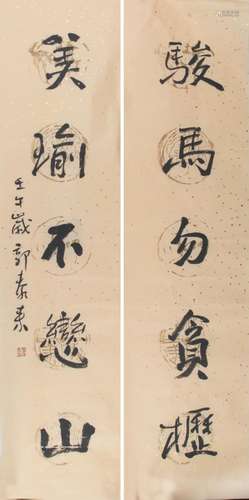 駿馬勿貪櫪
美瑜不戀山
壬午歲郭泰來